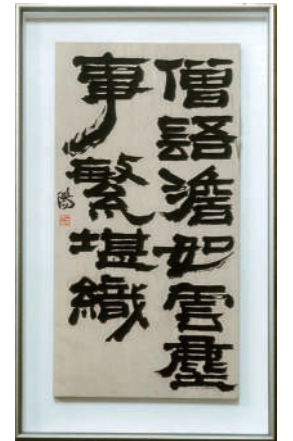 僧語澹如雲塵
事繁堪織
陽